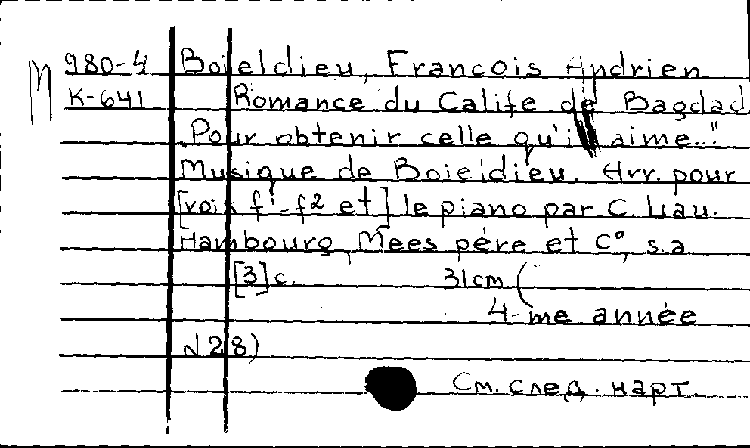 M 980-4 Boieldieu, Francois Andrien
K-641 Romance du Calife de Bagdad
„Pour obtenir celle qu'il aime..."
Musique de Boieldieu. Arr. pour
[voix f¹-f² et] le piano par C.
Hambourg, Mees père et C°, s.a
[3]c. 31cm (
4-me année
N28)
См. след. карт.